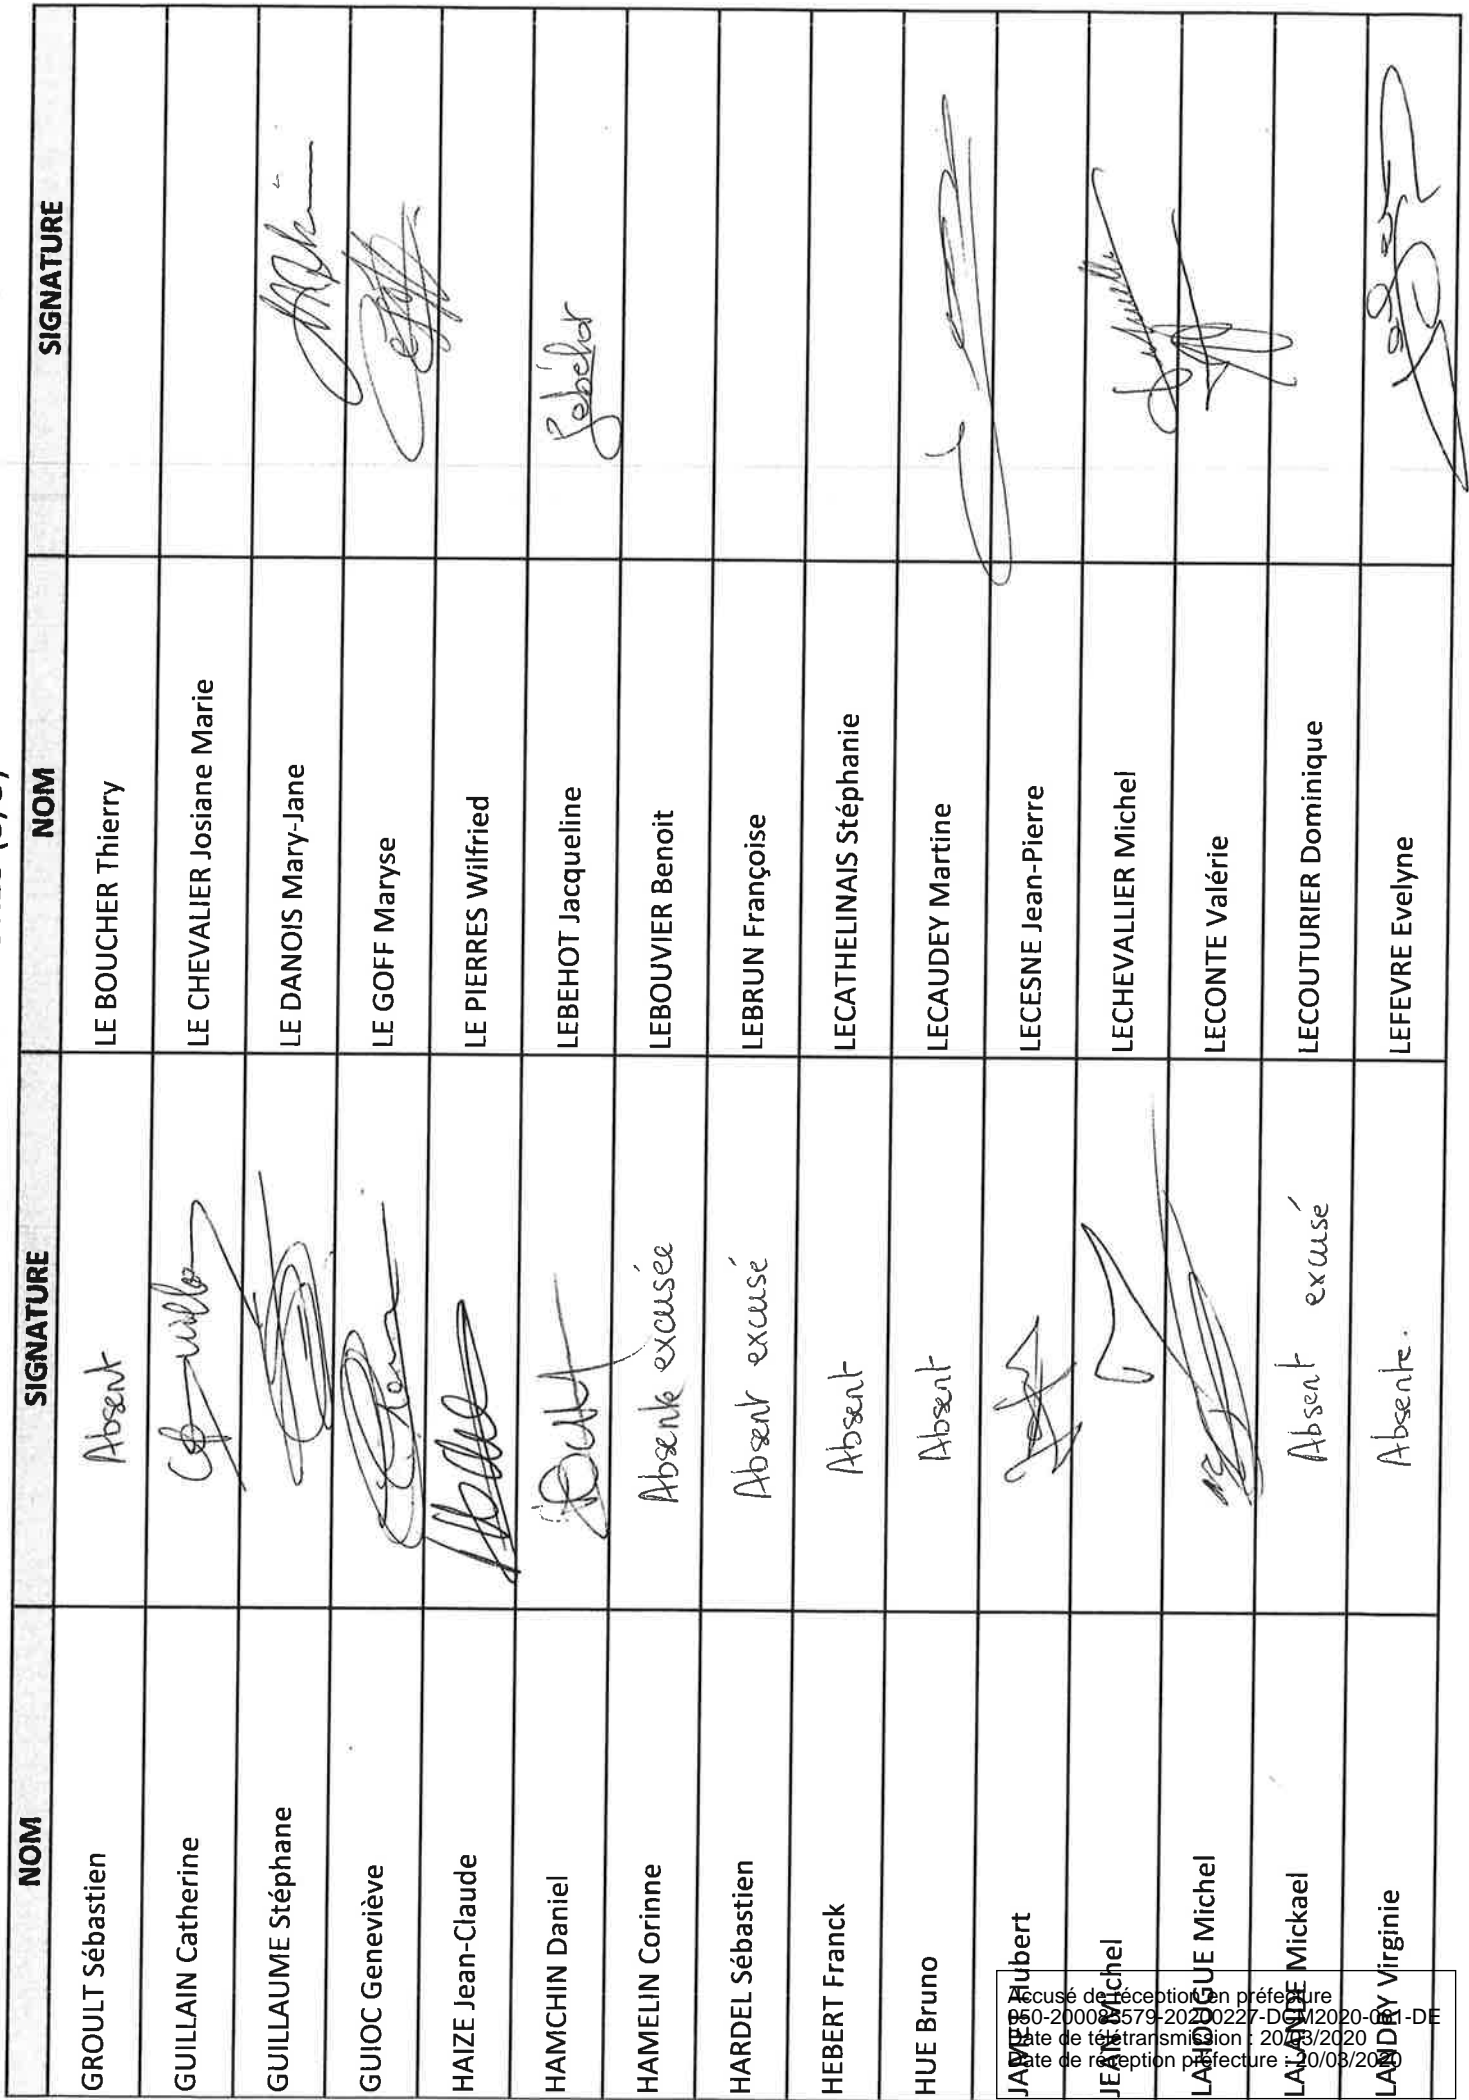 NOM SIGNATURE NOM SIGNATURE
GROULT Sébastien Absent LE BOUCHER Thierry
GUILLAIN Catherine LE CHEVALIER Josiane Marie
GUILLAUME Stéphane LE DANOIS Mary-Jane
GUIOC Geneviève LE GOFF Maryse
HAIZE Jean-Claude LE PIERRES Wilfried
HAMCHIN Daniel LEBEHOT Jacqueline
HAMELIN Corinne Absente excusée LEBOUVIER Benoit
HARDEL Sébastien Absent excusé LEBRUN Françoise
HEBERT Franck Absent LECATHELINAIS Stéphanie
HUE Bruno Absent LECAUDEY Martine
JAMET Hubert LECESNE Jean-Pierre
JEAN Michel LECHEVALLIER Michel
LAHOUGUE Michel LECONTE Valérie
LALANDE Mickael Absent excusé LECOUTURIER Dominique
LANDRY Virginie Absente. LEFEVRE Evelyne
Accusé de réception en préfecture
Date de télétransmission : 20/03/2020
Date de réception préfecture : 20/03/2020